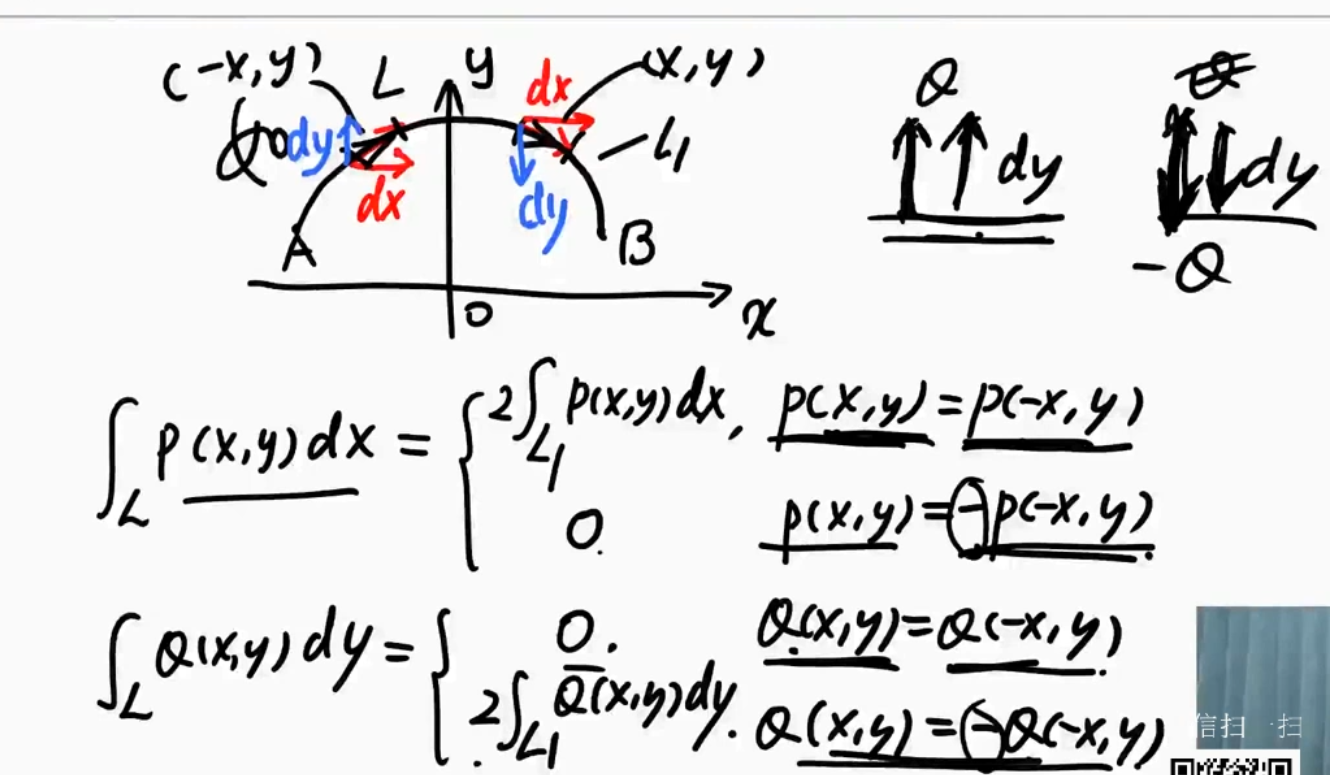 (-x, y) L y dx (x, y) Q
dy dx dy L₁ dy dy
A B -Q
O x
∫_L P(x,y)dx = { 2∫_{L₁} P(x,y)dx, P(x,y) = P(-x, y)
0. P(x,y) = -P(-x, y)
∫_L Q(x,y)dy = { 0. Q(x,y) = Q(-x, y)
2∫_{L₁} Q(x,y)dy. Q(x,y) = -Q(-x, y)
信扫一扫